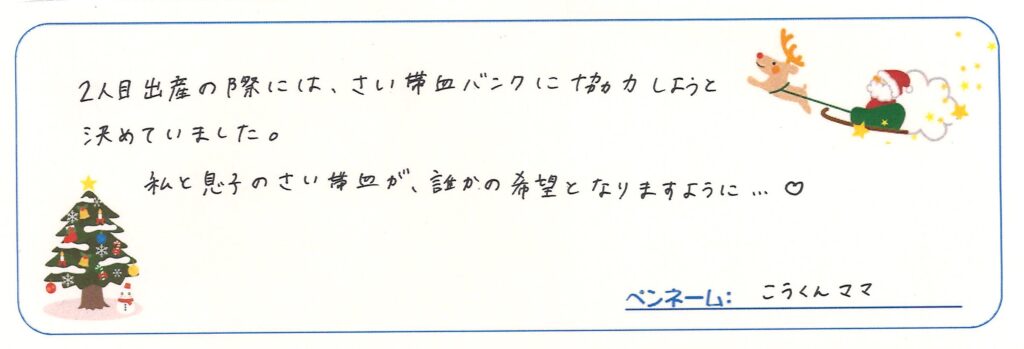 2人目出産の際には、さい帯血バンクに協力しようと
決めていました。
私と息子のさい帯血が、誰かの希望となりますように…♡
ペンネーム: こうくんママ